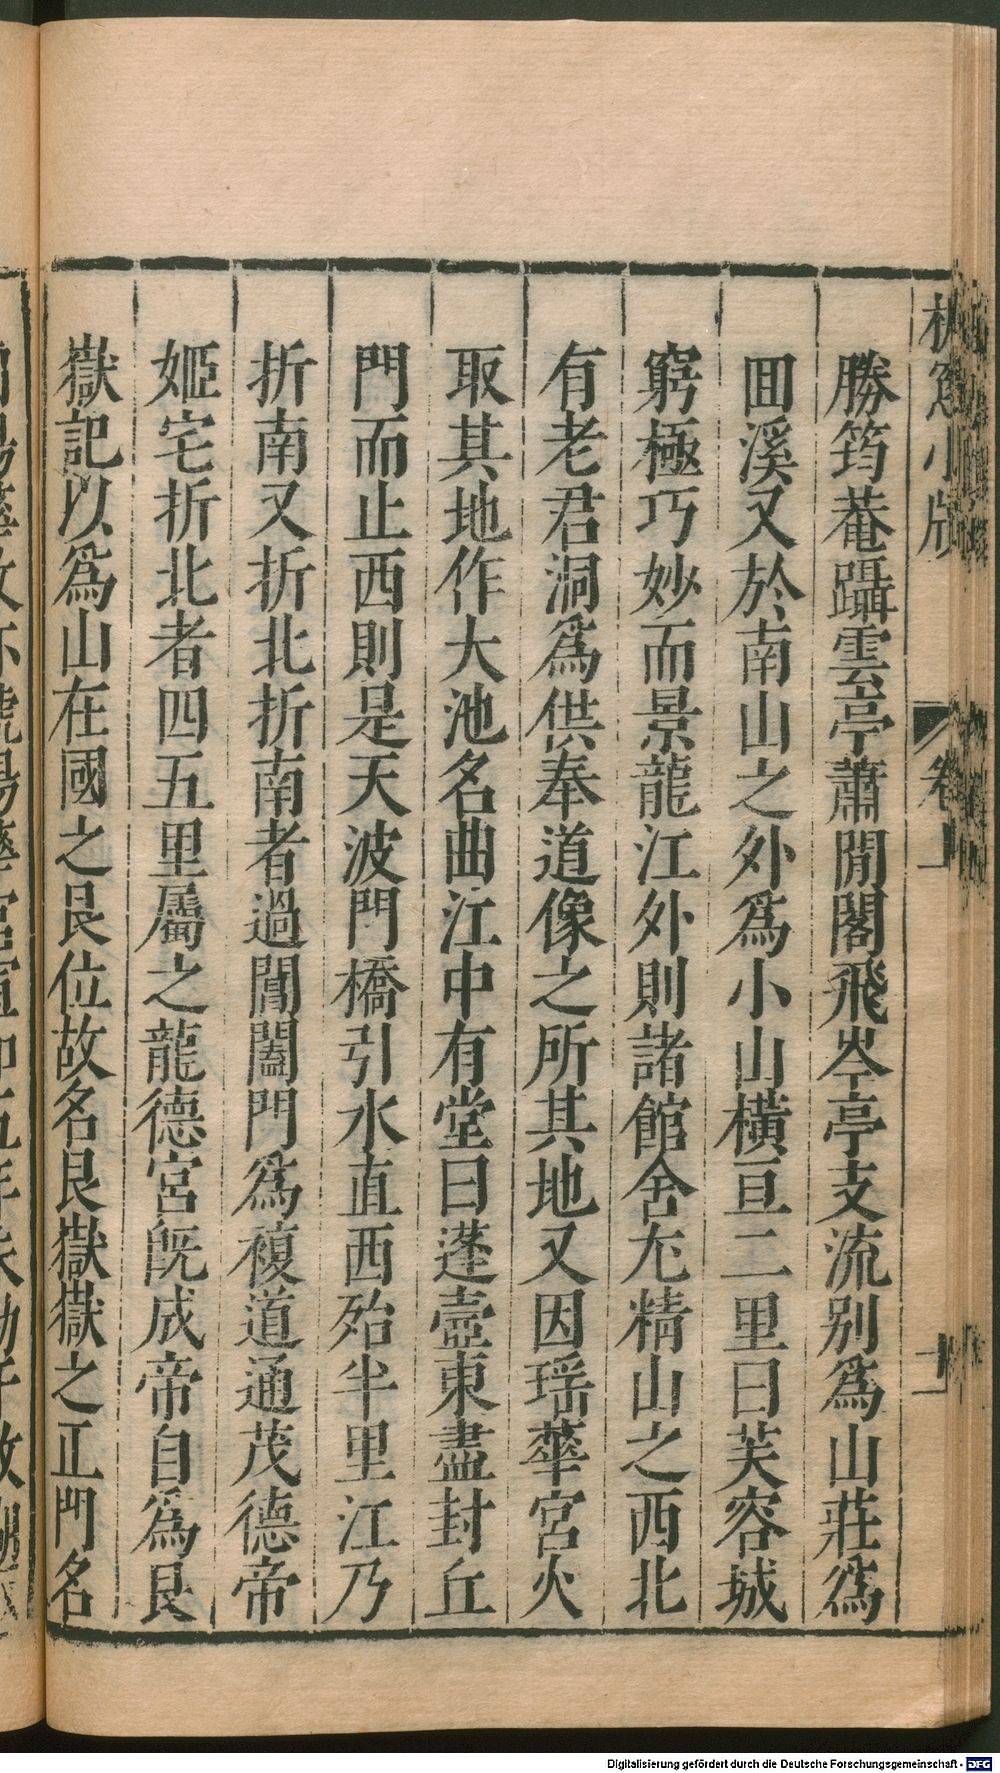 勝筠菴躡雲亭蕭閒閣飛岑亭支流别爲山莊爲
回溪又於南山之外爲小山橫亘二里曰芙容城
窮極巧妙而景龍江外則諸館舍尤精山之西北
有老君洞爲供奉道像之所其地又因瑶華宮火
取其地作大池名曲江中有堂曰蓬壺東盡封丘
門而止西則是天波門橋引水直西殆半里江乃
折南又折北折南者過閶闔門爲複道通茂德帝
姬宅折北者四五里屬之龍德宮旣成帝自爲艮
嶽記以爲山在國之艮位故名艮嶽嶽之正門名
卷上
十一
Digitalisierung gefördert durch die Deutsche Forschungsgemeinschaft - DFG